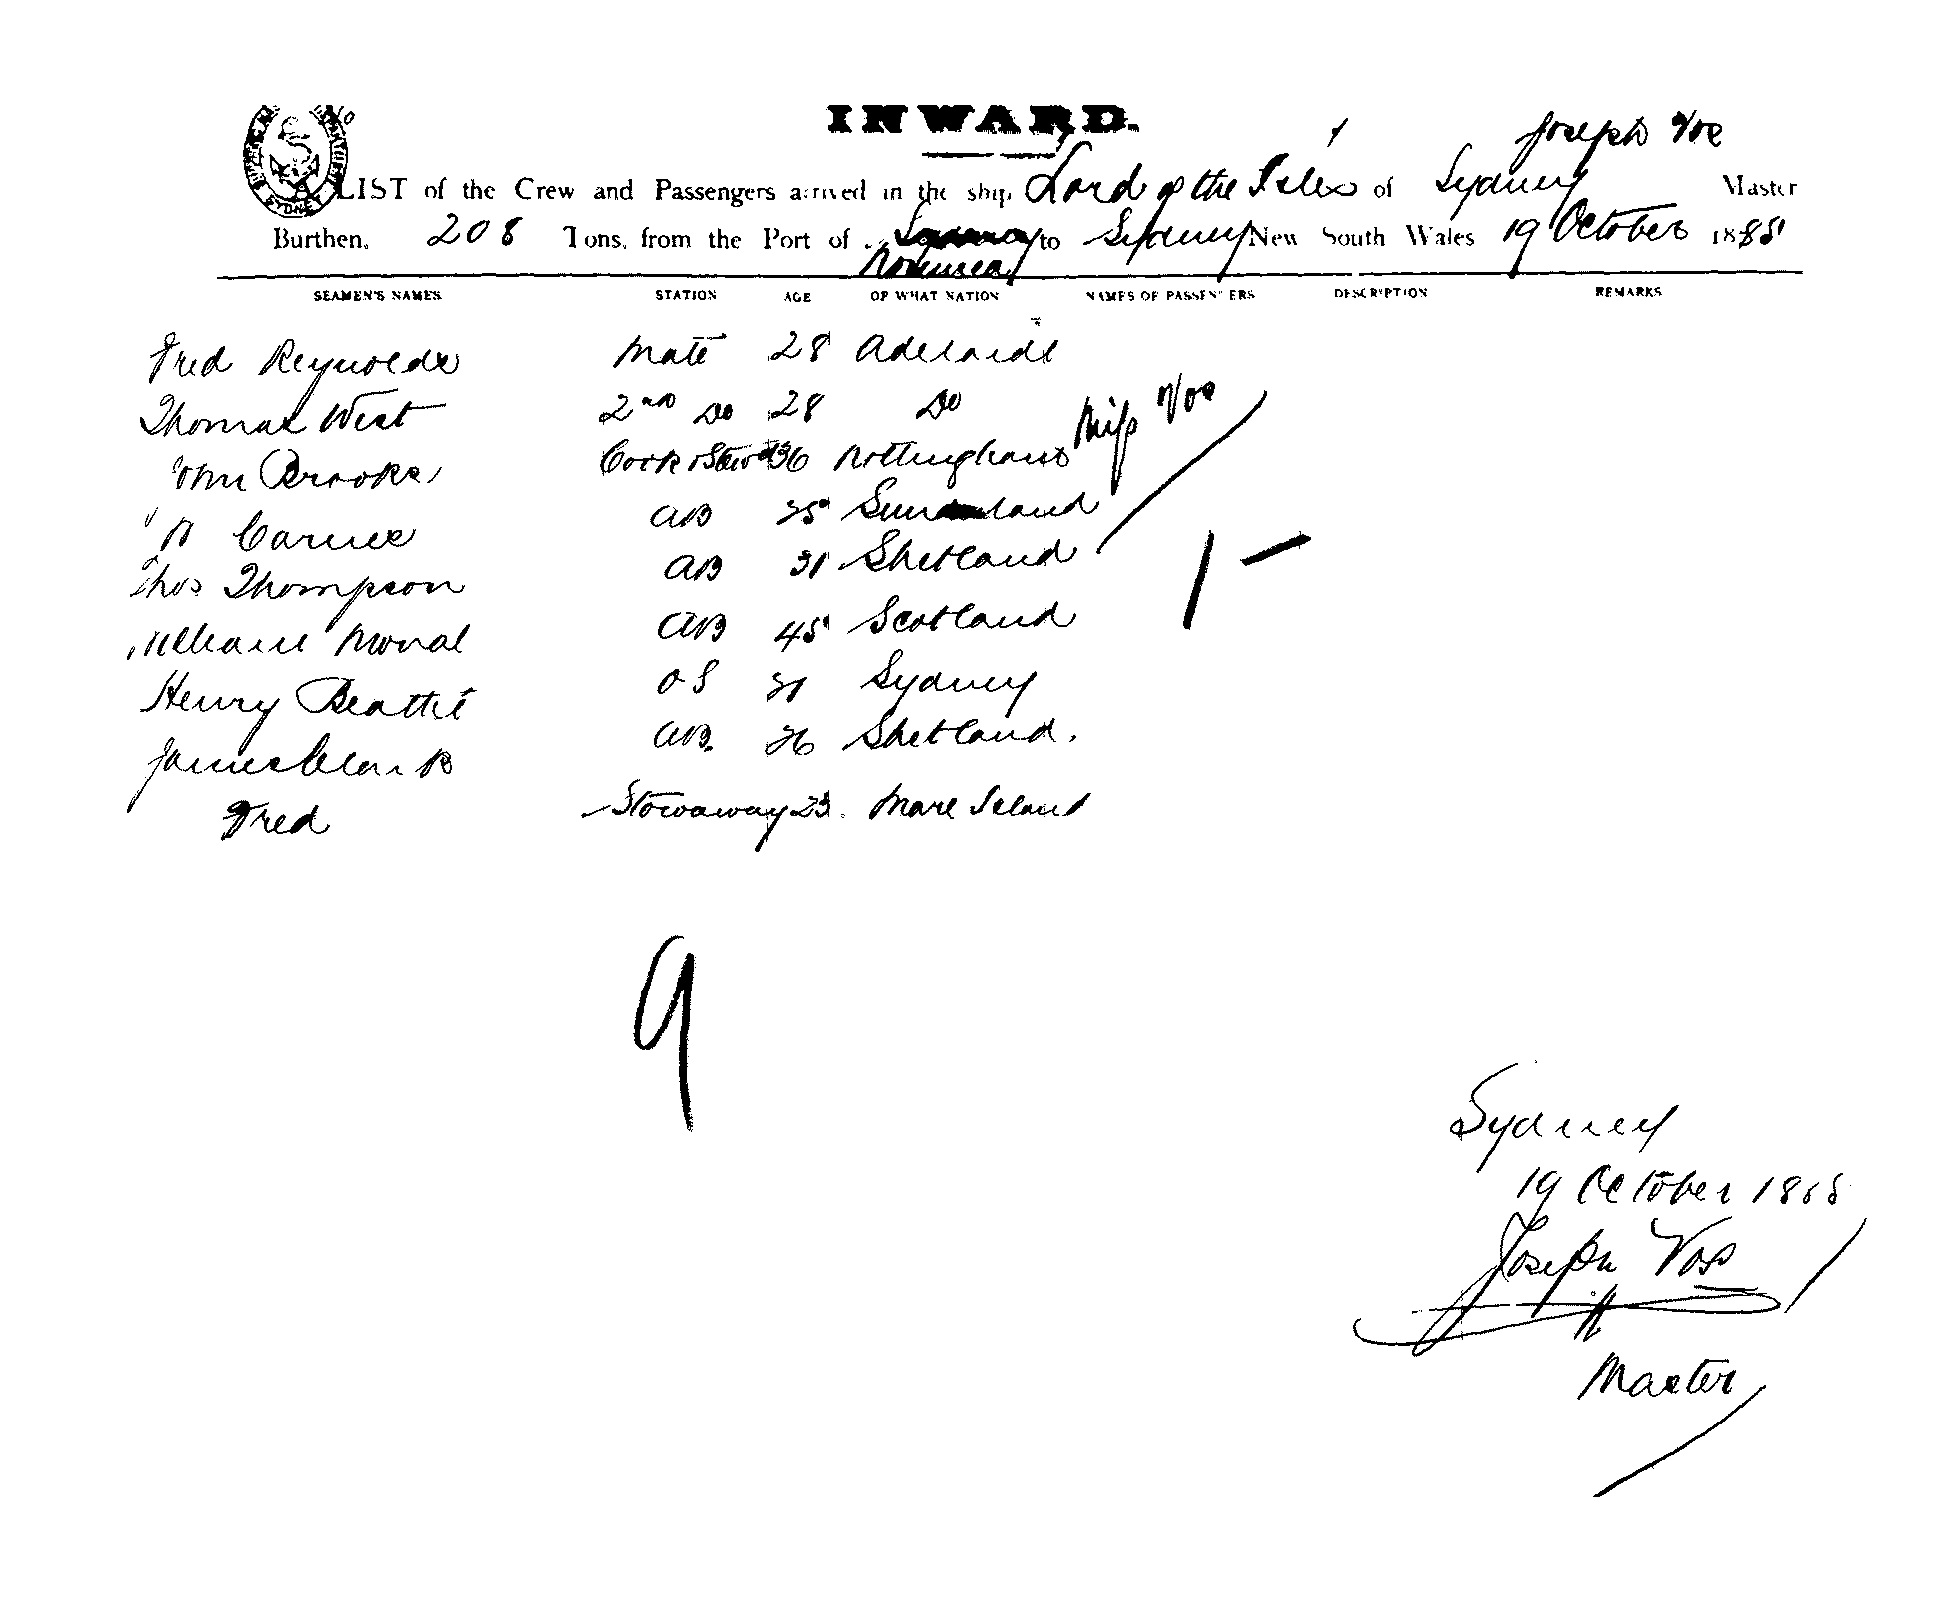 INWARD.
Joseph Vos
A LIST of the Crew and Passengers arrived in the ship Lord of the Isles of Sydney Master
Burthen, 208 Tons, from the Port of to Sydney New South Wales 19 October 1885
Noumea
SEAMEN'S NAMES STATION AGE OF WHAT NATION NAMES OF PASSENGERS DESCRIPTION REMARKS
Fred Reynolds Mate 28 Adelaide
Thomas West 2nd Do 28 Do Miss Vos
John Brooks Cook & Stewd 36 Nottingham
Carnie AB 25 Sunderland
Thos Thompson AB 31 Shetland
1 -
William AB 45 Scotland
Henry Beattie OS 21 Sydney
James Clark AB. 26 Shetland.
Fred Stowaway 23. Mare Island
9
Sydney
19 October 1885
Joseph Vos
Master